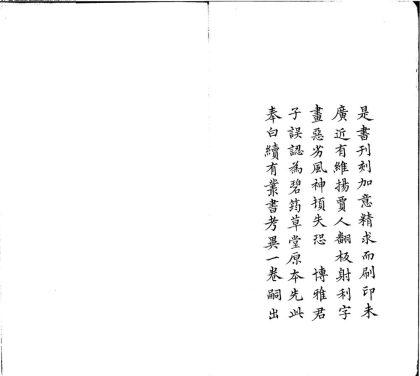 是書刊刻加意精求而刷印未
廣近有維揚賈人翻板射利字
畫惡劣風神頓失恐　博雅君
子誤認為碧筠草堂原本先此
奉白續有叢書考異一卷嗣出